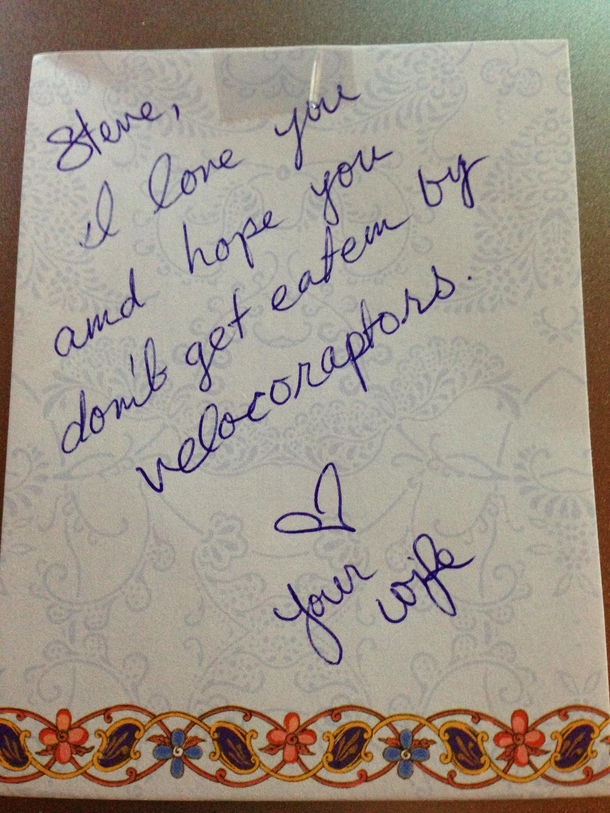 Steve,
I love you
and hope you
don't get eaten by
velocoraptors.
♡
your
wife